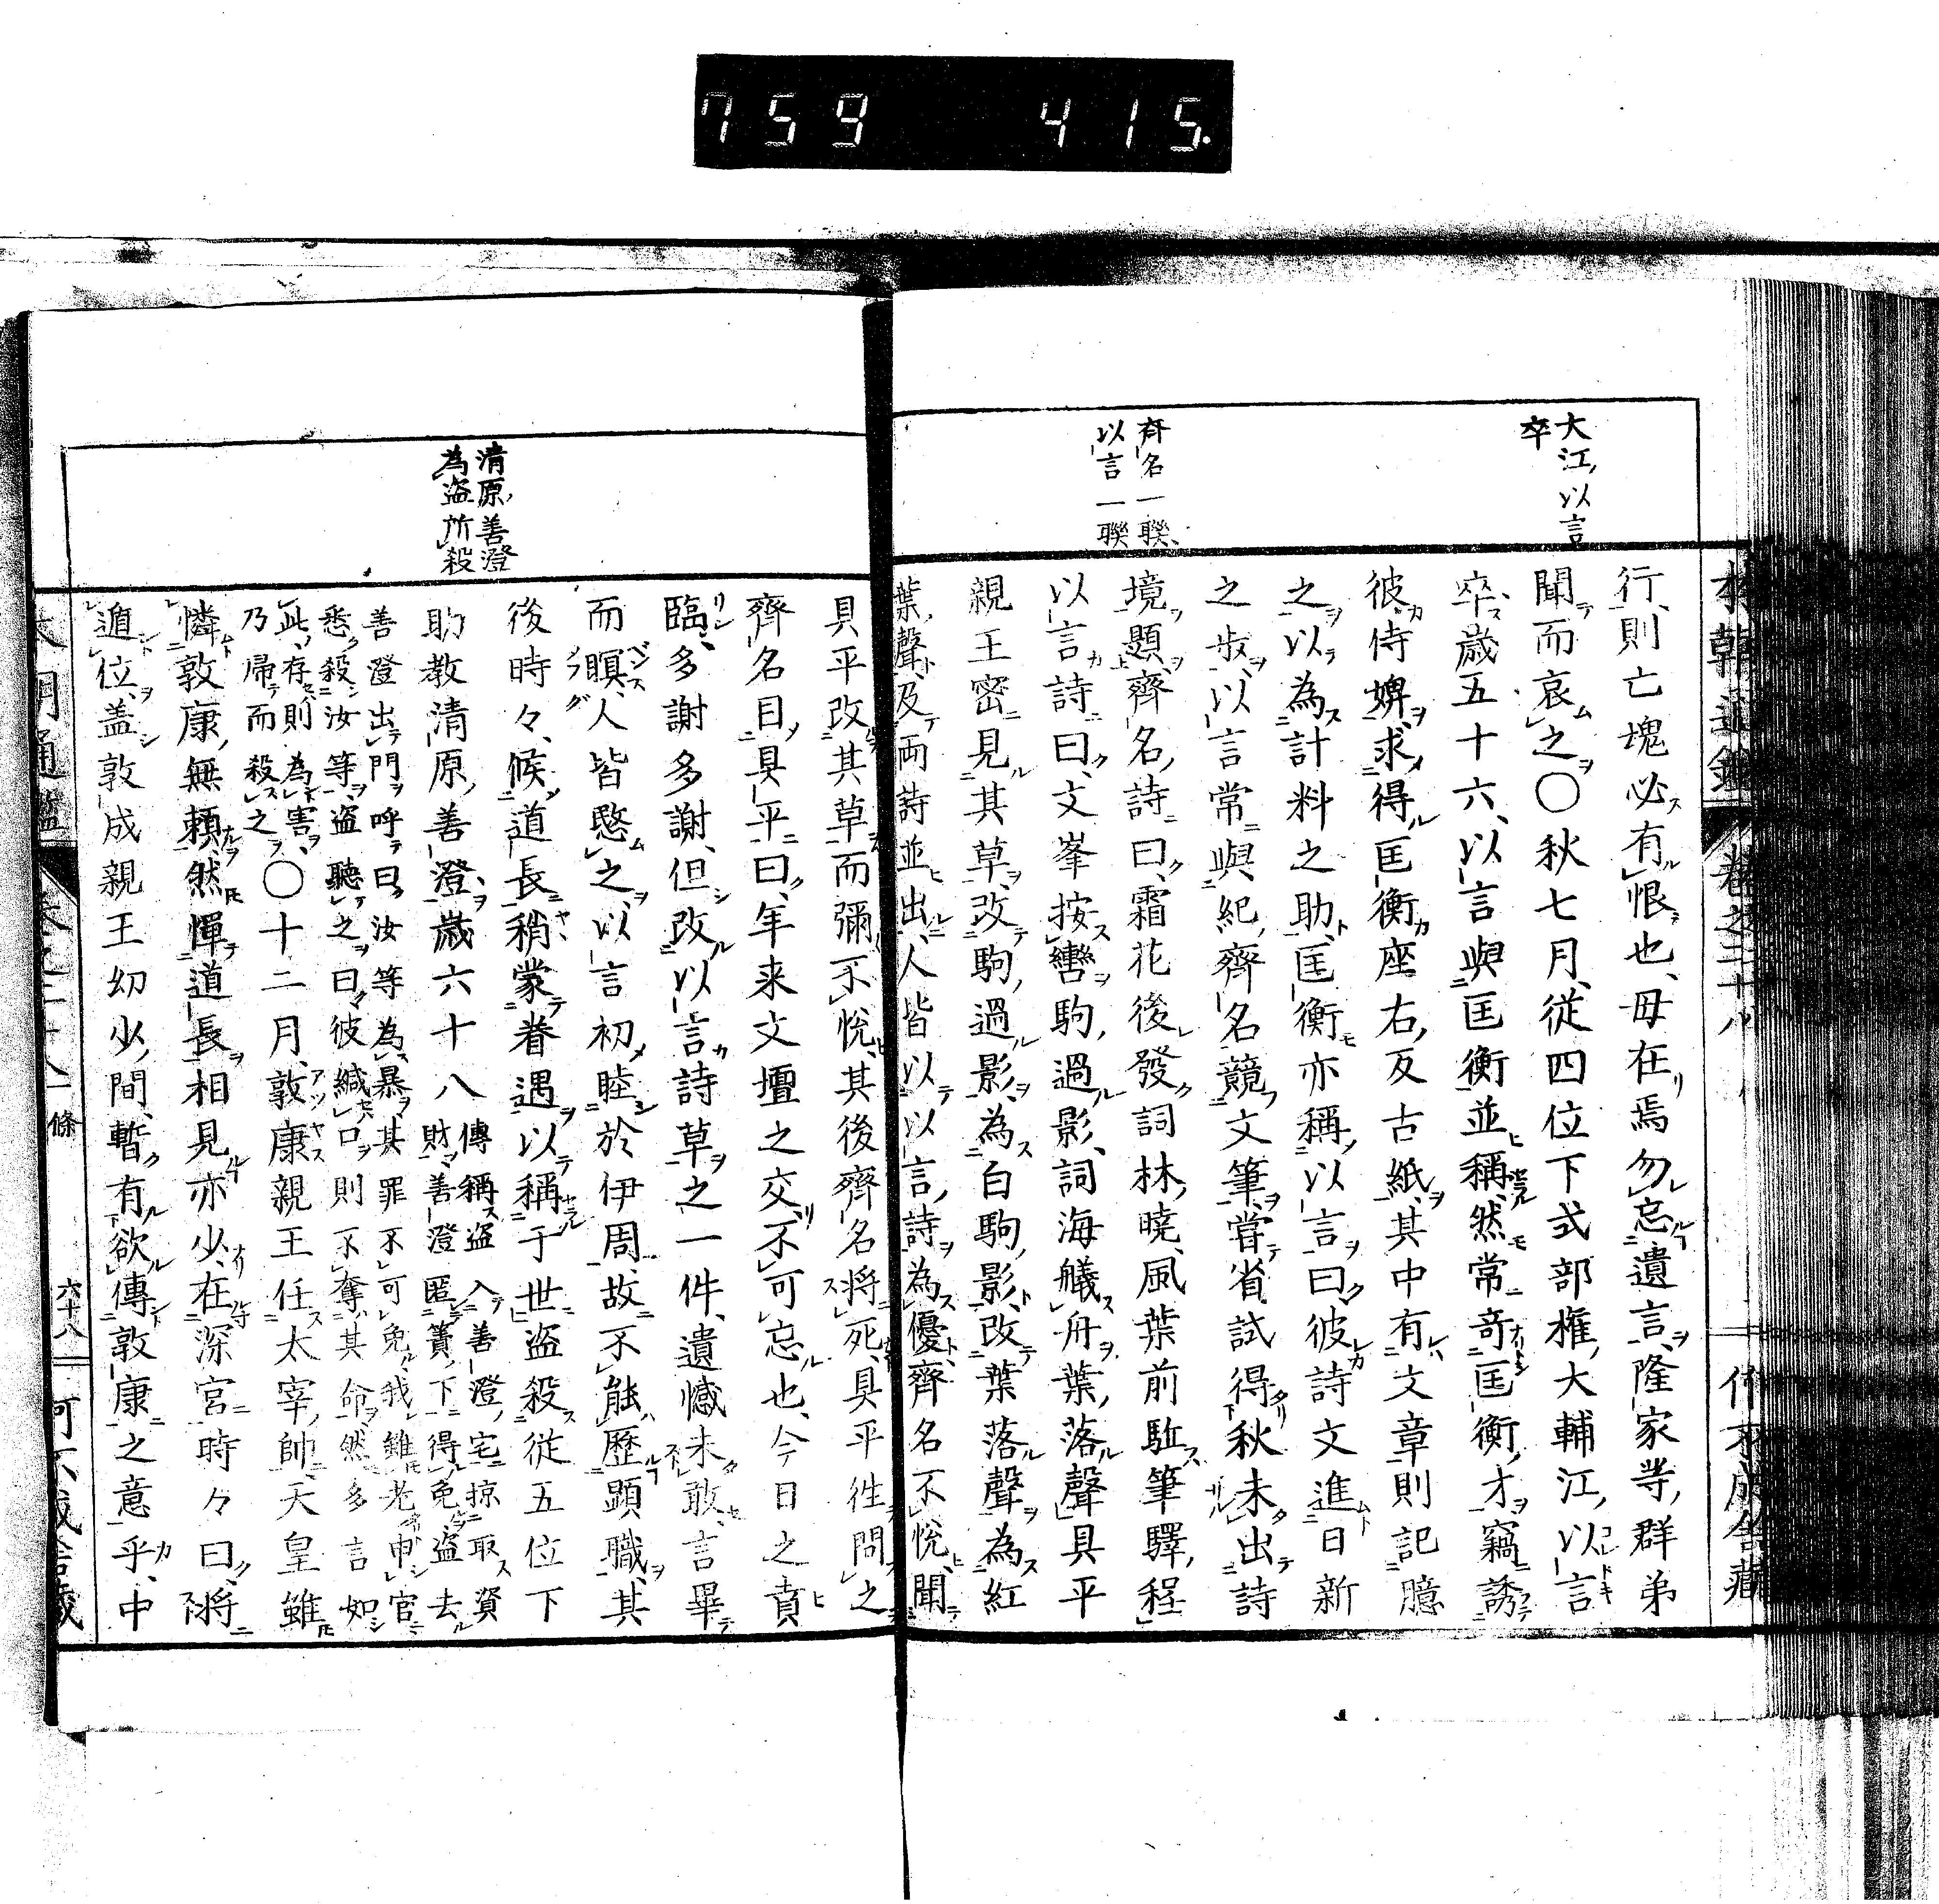 759 415.
本朝通鑑 卷之二十八 何不成舍藏
大江以言
卒
齊名一聯
以言一聯
行則亡塊必有恨也母在焉勿忘遺言隆家等群弟
聞而哀之〇秋七月從四位下式部權大輔江以言
卒歲五十六以言與匡衡並稱然常奇匡衡才竊誘
彼侍婢求得匡衡座右反古紙其中有文章則記臆
之以為計料之助匡衡亦稱以言曰彼詩文進日新
之步以言常與紀齊名競文筆嘗省試得秋未出詩
境題齊名詩曰霜花後發詞林曉風葉前駈筆驛程
以言詩曰文峯按轡駒過影詞海艤舟葉落聲具平
親王密見其草改駒過影為白駒影改葉落聲為紅
葉聲及両詩並出人皆以以言詩為優齊名不悅聞
具平改其草而彌不悅其後齊名將死具平徃問之
齊名目具平曰年来文壇之交不可忘也今日之賁
臨多謝多謝但改以言詩草之一件遺憾未敢言畢
而瞑人皆愍之以言初睦於伊周故不能歷顯職其
後時々候道長稍蒙眷遇以稱于世盗殺從五位下
助教清原善澄歲六十八傳稱盗入善澄宅掠取資
財善澄匿簀下得免盗去
善澄出門呼曰汝等為暴其罪不可免我雖老申官
悉殺汝等盗聽之曰彼緘口則不奪其命然多言如
此存則為害
乃帰而殺之〇十二月敦康親王任太宰帥天皇雖
憐敦康無頼然憚道長相見亦少在深宮時々曰將
遁位盖敦成親王幼少間暫有欲傳敦康之意乎中
清原善澄
為盗所殺
本朝通鑑 卷之二十八 一條 六十八 何不成舍藏